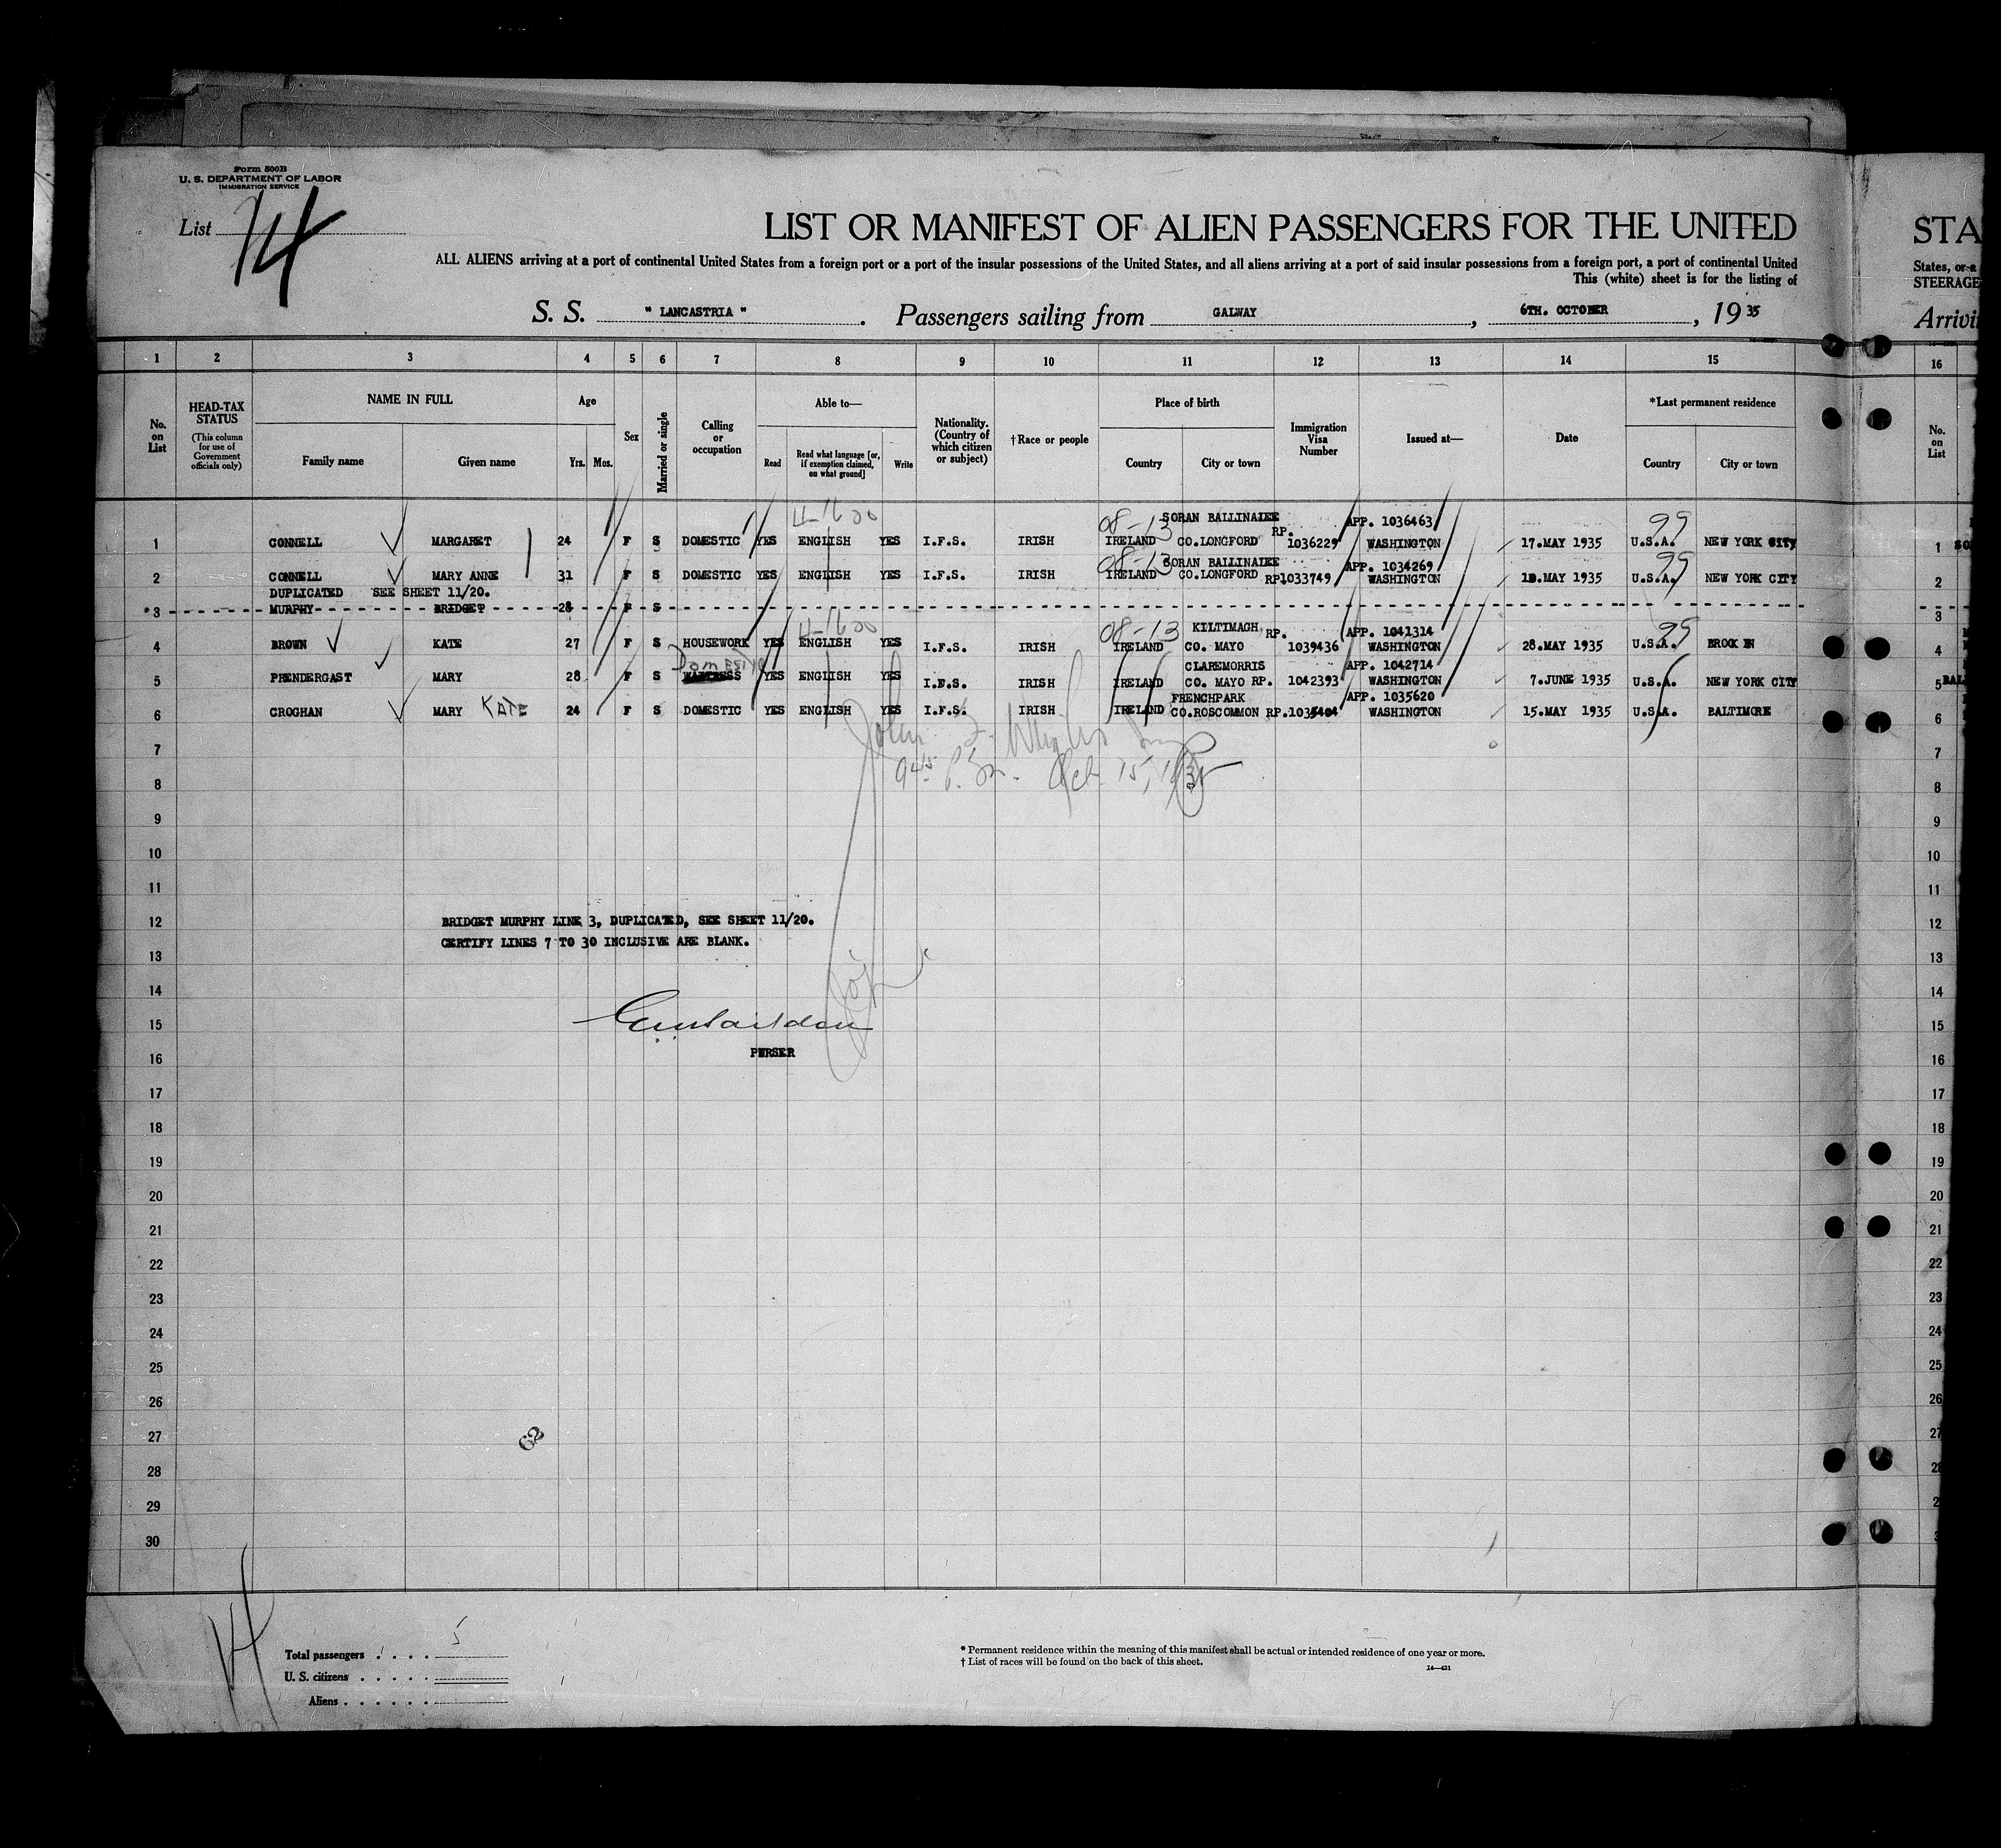 Form 500B
U. S. DEPARTMENT OF LABOR
IMMIGRATION SERVICE
List 14
LIST OR MANIFEST OF ALIEN PASSENGERS FOR THE UNITED
STA
ALL ALIENS arriving at a port of continental United States from a foreign port or a port of the insular possessions of the United States, and all aliens arriving at a port of said insular possessions from a foreign port, a port of continental United
States, or a
This (white) sheet is for the listing of
STEERAGE
S. S. " LANCASTRIA ". Passengers sailing from GALWAY, 6TH. OCTOBER, 1935
1 2 3 4 5 6 7 8 9 10 11 12 13 14 15 16
No. on List
HEAD-TAX STATUS (This column for use of Government officials only)
NAME IN FULL
Family name Given name
Age
Yrs. Mos.
Sex
Married or single
Calling or occupation
Able to—
Read Read what language [or, if exemption claimed, on what ground] Write
Nationality. (Country of which citizen or subject)
†Race or people
Place of birth
Country City or town
Immigration Visa Number
Issued at—
Date
*Last permanent residence
Country City or town
No. on List
4-1600 08-13 SORAN BALLINALEE RP. APP. 1036463 99
1 CONNELL MARGARET 24 F S DOMESTIC YES ENGLISH YES I.F.S. IRISH IRELAND CO.LONGFORD 1036229 WASHINGTON 17.MAY 1935 U.S.A. NEW YORK CITY 1
08-13 SORAN BALLINALEE APP. 1034269 99
2 CONNELL MARY ANNE 31 F S DOMESTIC YES ENGLISH YES I.F.S. IRISH IRELAND CO.LONGFORD RP1033749 WASHINGTON MAY 1935 U.S.A. NEW YORK CITY 2
DUPLICATED SEE SHEET 11/20.
*3 MURPHY BRIDGET 28 F S 3
4-1600 08-13 KILTIMAGH RP. APP. 1041314 99
4 BROWN KATE 27 F S HOUSEWORK YES ENGLISH YES I.F.S. IRISH IRELAND CO. MAYO 1039436 WASHINGTON 28.MAY 1935 U.S.A. 4
Domestic CLAREMORRIS APP. 1042714
5 PRENDERGAST MARY 28 F S WAITRESS YES ENGLISH YES I.F.S. IRISH IRELAND CO. MAYO RP. 1042393 WASHINGTON 7.JUNE 1935 U.S.A. NEW YORK CITY 5
FRENCHPARK APP. 1035620
6 CROGHAN MARY KATE 24 F S DOMESTIC YES ENGLISH YES I.F.S. IRISH IRELAND CO.ROSCOMMON RP. WASHINGTON 15.MAY 1935 U.S.A. BALTIMORE 6
John
7 7
9 45 P.M. Oct 15, 1935
8 8
9 9
10 10
11 11
12 BRIDGET MURPHY LINE 3, DUPLICATED, SEE SHEET 11/20. 12
CERTIFY LINES 7 TO 30 INCLUSIVE ARE BLANK.
13 13
14 14
15 15
16 PURSER 16
17 17
18 18
19 19
20 20
21 21
22 22
23 23
24 24
25 25
26 26
27 62 27
28 28
29 2
30 3
14
Total passengers . . . . 5
U. S. citizens . . . . .
Aliens . . . . . .
* Permanent residence within the meaning of this manifest shall be actual or intended residence of one year or more.
† List of races will be found on the back of this sheet.
14—431